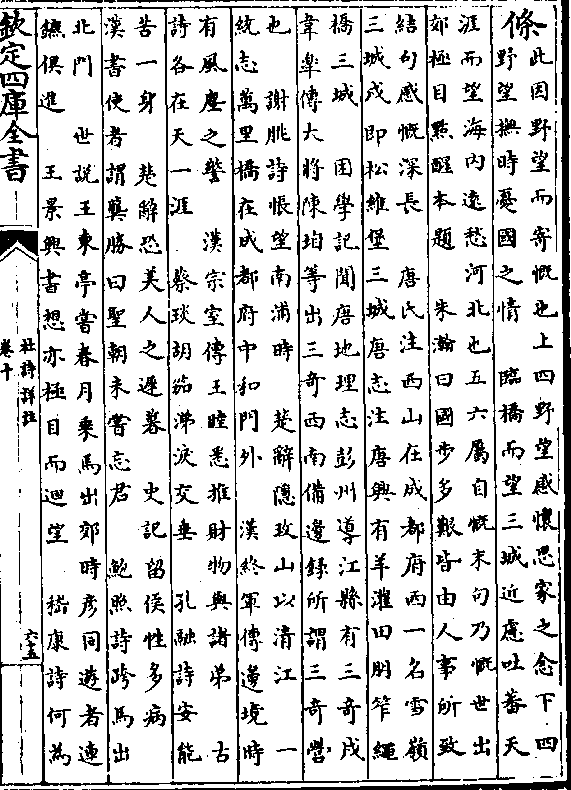 條
此因野望而寄慨也上四野望感懷思家之念下四
野望撫時憂國之情 臨橋而望三城近慮吐蕃天
涯而望海内遠愁河北也五六屬自慨末句乃慨世出
郊極目㸃醒本題 朱瀚曰國步多艱皆由人事所致
結句感慨深長 唐氏注西山在成都府西一名雪嶺
三城戍即松維堡三城唐志注唐興有羊灌田朋笮繩
橋三城 困學記聞唐地理志彭州導江縣有三奇戍
韋臯傳大將陳珀等出三奇西南備邊錄所謂三奇營
也 謝朓詩悵望南浦時 楚辭隱玫山以清江 一
統志萬里橋在成都府中和門外 漢終軍傳邊境時
有風塵之警 漢宗室傳王睦悉推財物與諸弟 古
詩各在天一涯 蔡琰胡笳涕淚交垂 孔融詩安能
苦一身 楚辭恐美人之遲暮 史記留侯性多病
漢書使者謂龔勝曰聖朝未嘗忘君 鮑照詩跨馬出
北門 世說王東亭嘗春月乘馬出郊時彦同遊者連
鑣俱進 王景興書想亦極目而廻望 嵇康詩何為
欽定四庫全書
杜詩詳註
卷十
六十五